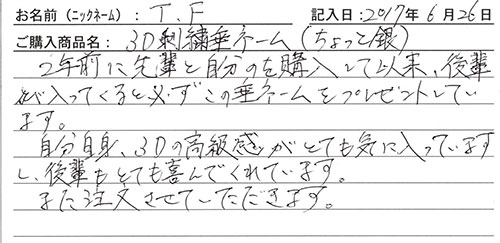 お名前（ニックネーム）： T.F 記入日：2017年 6月26日
ご購入商品名： 3D刺繍垂ネーム（ちょっと銀）
2年前に先輩と自分のを購入して以来、後輩
が入ってくると必ずこの垂ネームをプレゼントしてい
ます。
自分自身、3Dの高級感がとても気に入っています
し、後輩もとても喜んでくれています。
また注文させていただきます。